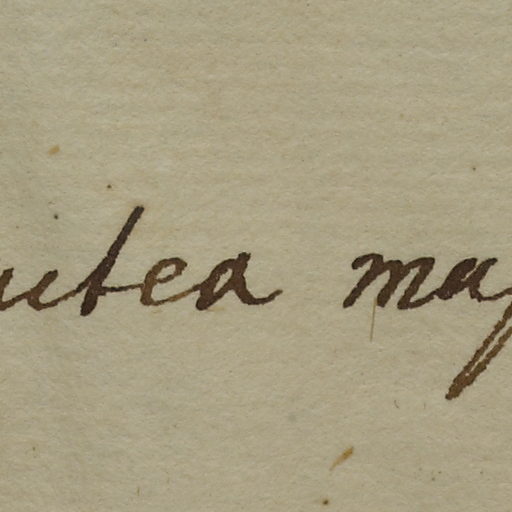 utea mag